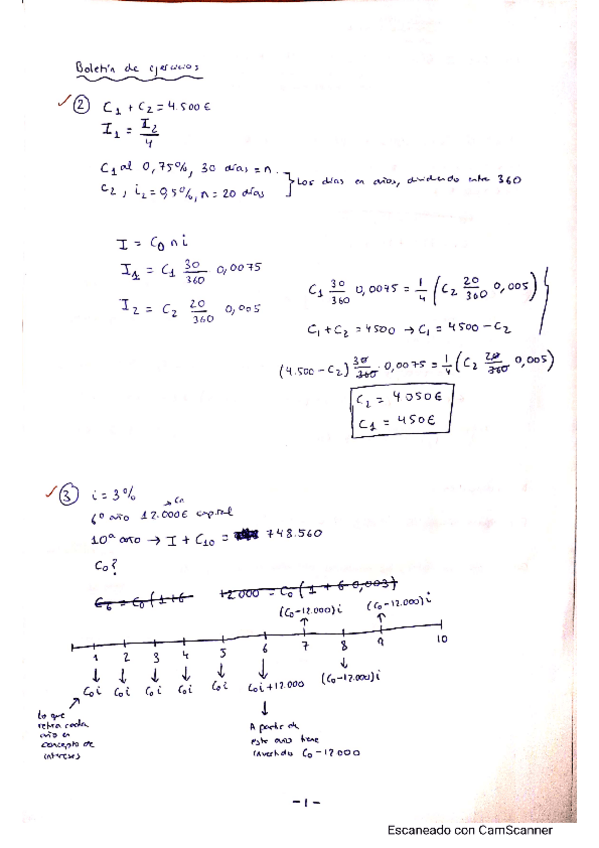 Boletín de ejercicios
② C₁ + C₂ = 4.500 €
I₁ = I₂/4
C₁ al 0,75%, 30 días = n.
C₂, i₂ = 0,5%, n = 20 días
Los días en años, dividiendo entre 360
I = C₀ n i
I₁ = C₁ 30/360 0,0075
I₂ = C₂ 20/360 0,005
C₁ 30/360 0,0075 = 1/4 (C₂ 20/360 0,005)
C₁ + C₂ = 4500 → C₁ = 4500 - C₂
(4.500 - C₂) 30/360 · 0,0075 = 1/4 (C₂ 20/360 0,005)
C₂ = 4050 €
C₁ = 450 €
③ i = 3%
→ Cn
6º año 12.000€ capital
10º año → I + C₁₀ = 748.560
C₀?
C₆ = C₀ (1+6 12000 = C₀ (1 + 6 0,003)
(C₀-12.000)i (C₀-12.000)i
1 2 3 4 5 6 7 8 9 10
C₀i C₀i C₀i C₀i C₀i C₀i+12.000 (C₀-12.000)i
Lo que
retira cada
año en
concepto de
intereses
A partir de
este año tiene
invertido C₀-12000
-1-
Escaneado con CamScanner